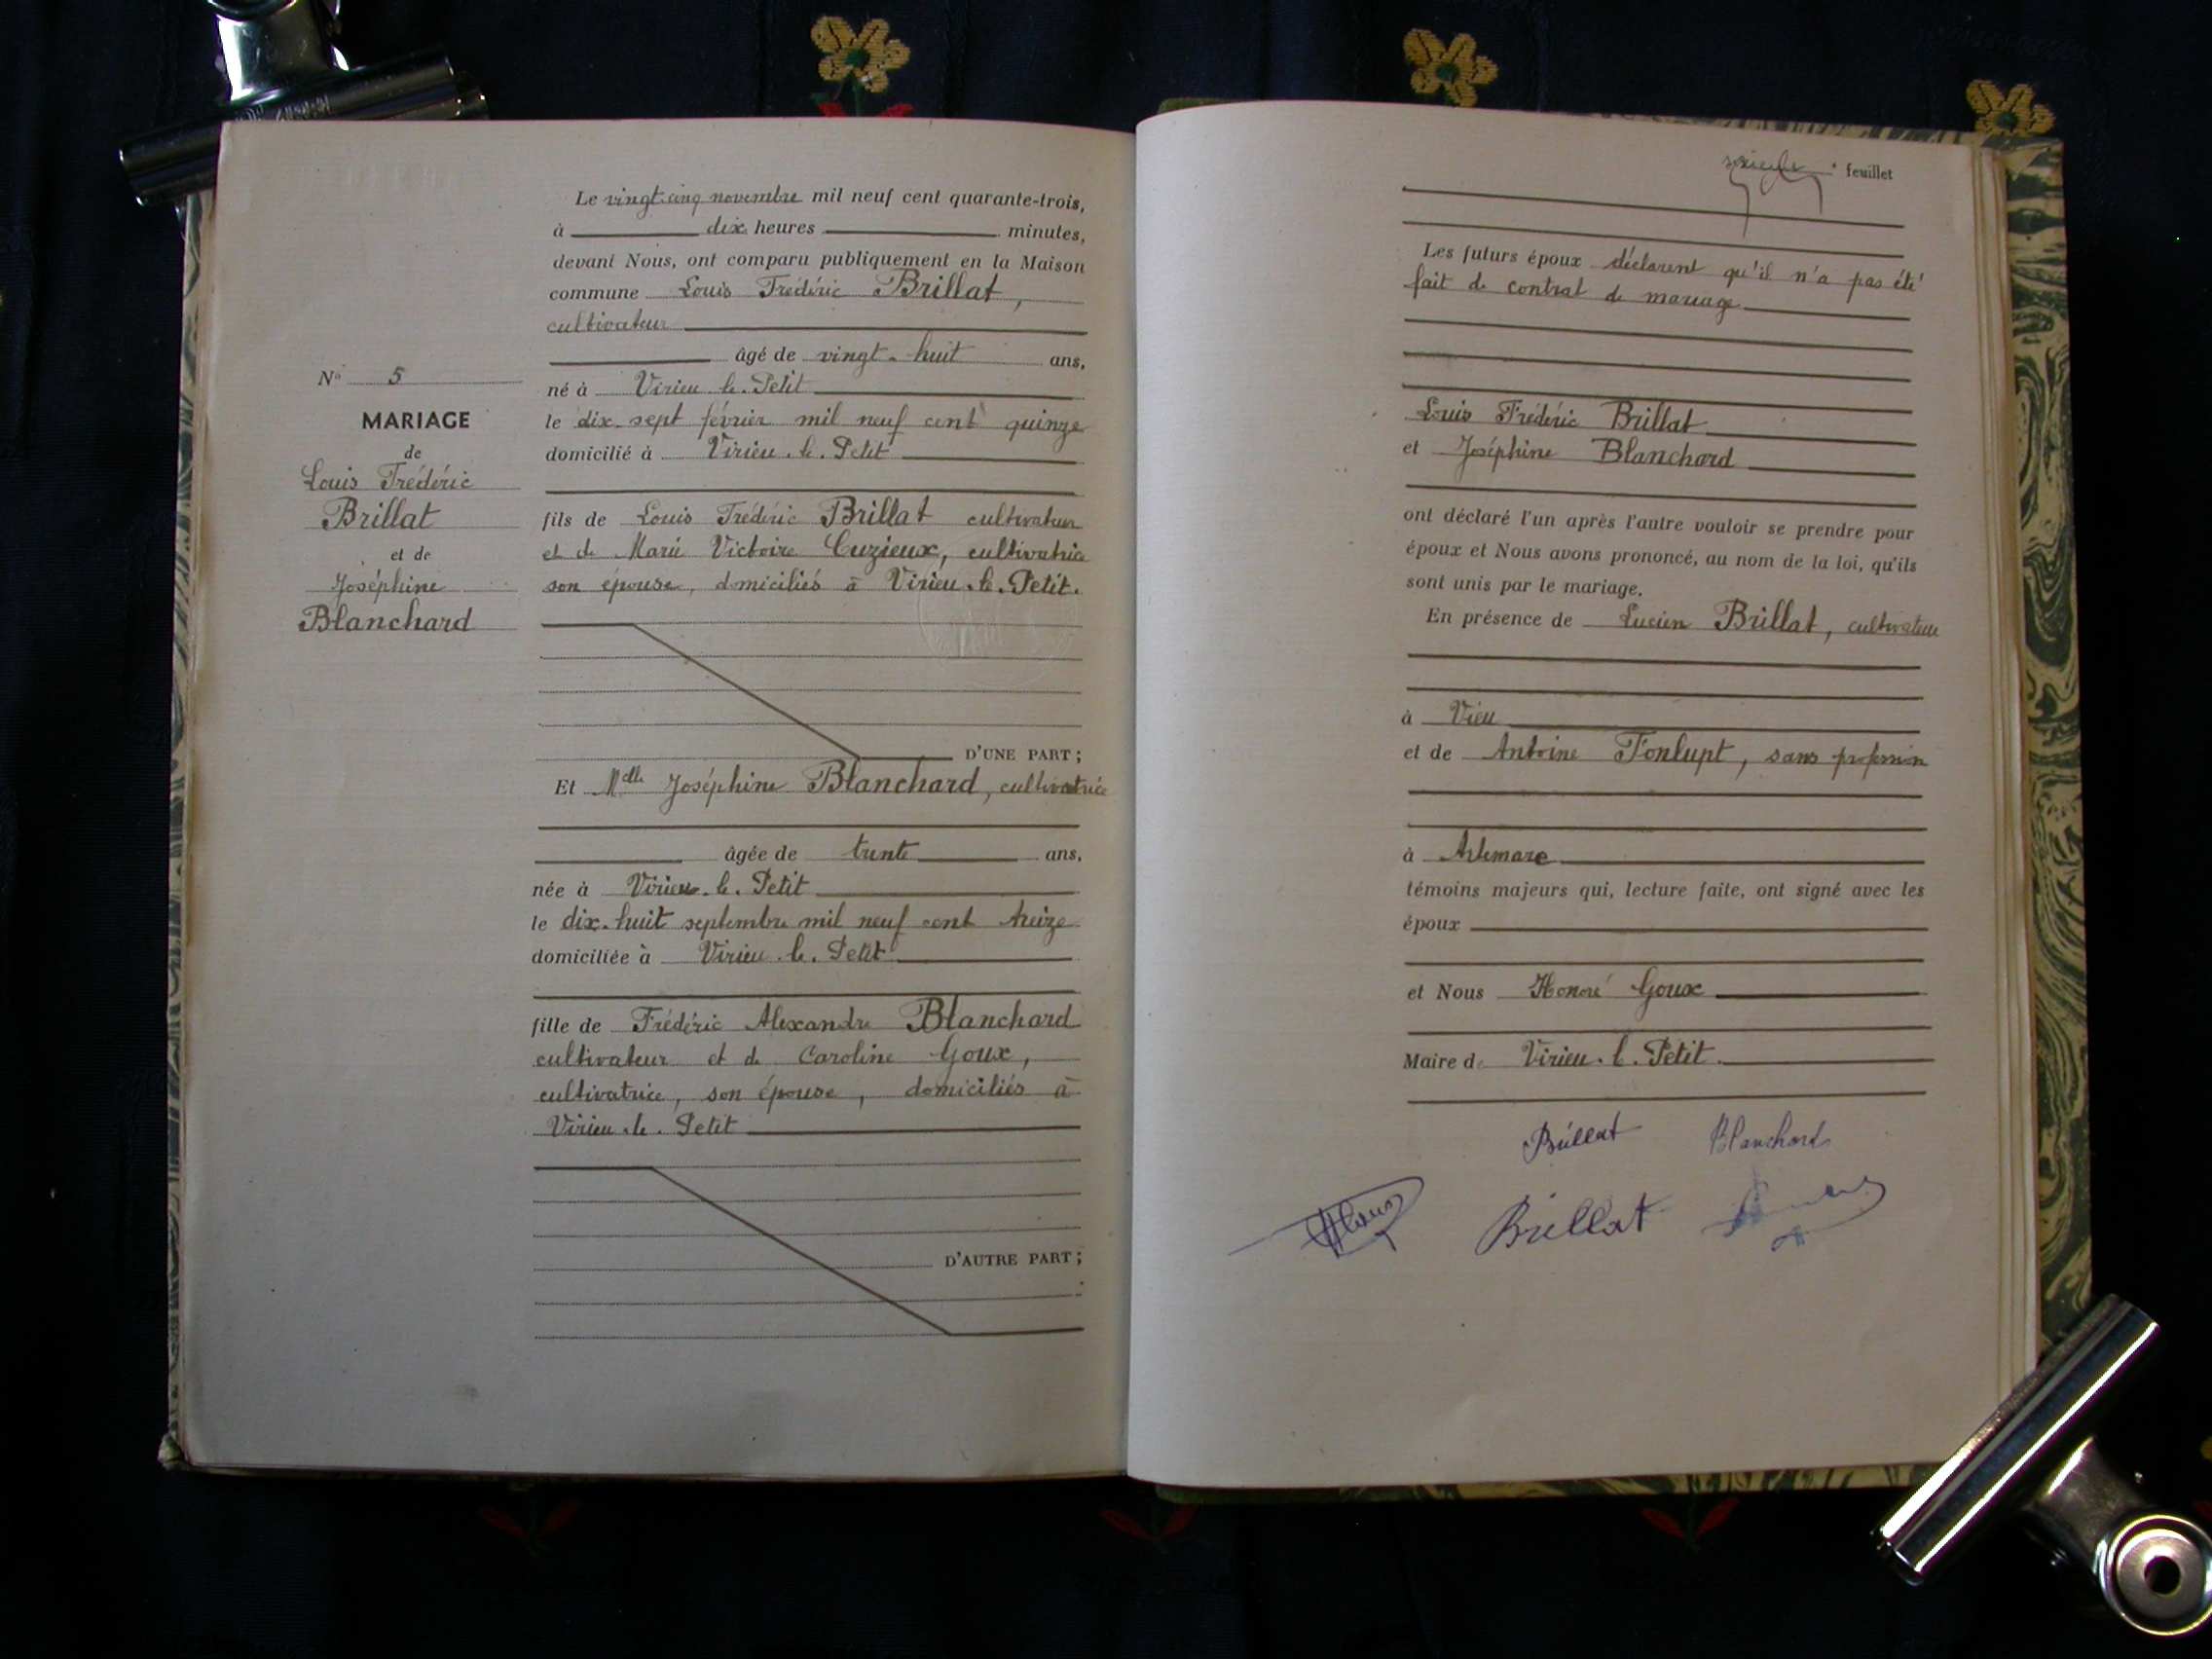 Le vingt-cinq novembre mil neuf cent quarante-trois,
à dix heures minutes,
devant Nous, ont comparu publiquement en la Maison
commune Louis Frédéric Brillat,
cultivateur
âgé de vingt-huit ans,
né à Virieu-le-Petit
le dix-sept février mil neuf cent quinze
domicilié à Virieu-le-Petit
fils de Louis Frédéric Brillat cultivateur
et de Marie Victoire Cuzieux, cultivatrice
son épouse, domiciliés à Virieu-le-Petit.
D'UNE PART ;
N° 5
MARIAGE
de
Louis Frédéric
Brillat
et de
Joséphine
Blanchard
Et Mdlle Joséphine Blanchard, cultivatrice
âgée de trente ans,
née à Virieu-le-Petit
le dix-huit septembre mil neuf cent treize
domiciliée à Virieu-le-Petit
fille de Frédéric Alexandre Blanchard
cultivateur et de Caroline Goux,
cultivatrice, son épouse, domiciliés à
Virieu-le-Petit
D'AUTRE PART ;
feuillet
Les futurs époux déclarent qu'il n'a pas été
fait de contrat de mariage
Louis Frédéric Brillat
et Joséphine Blanchard
ont déclaré l'un après l'autre vouloir se prendre pour
époux et Nous avons prononcé, au nom de la loi, qu'ils
sont unis par le mariage.
En présence de Lucien Brillat, cultivateur
à Vieu
et de Antoine Fonlupt, sans profession
à Artemare
témoins majeurs qui, lecture faite, ont signé avec les
époux
et Nous Honoré Goux
Maire de Virieu-l-Petit
Brillat Blanchard
Brillat